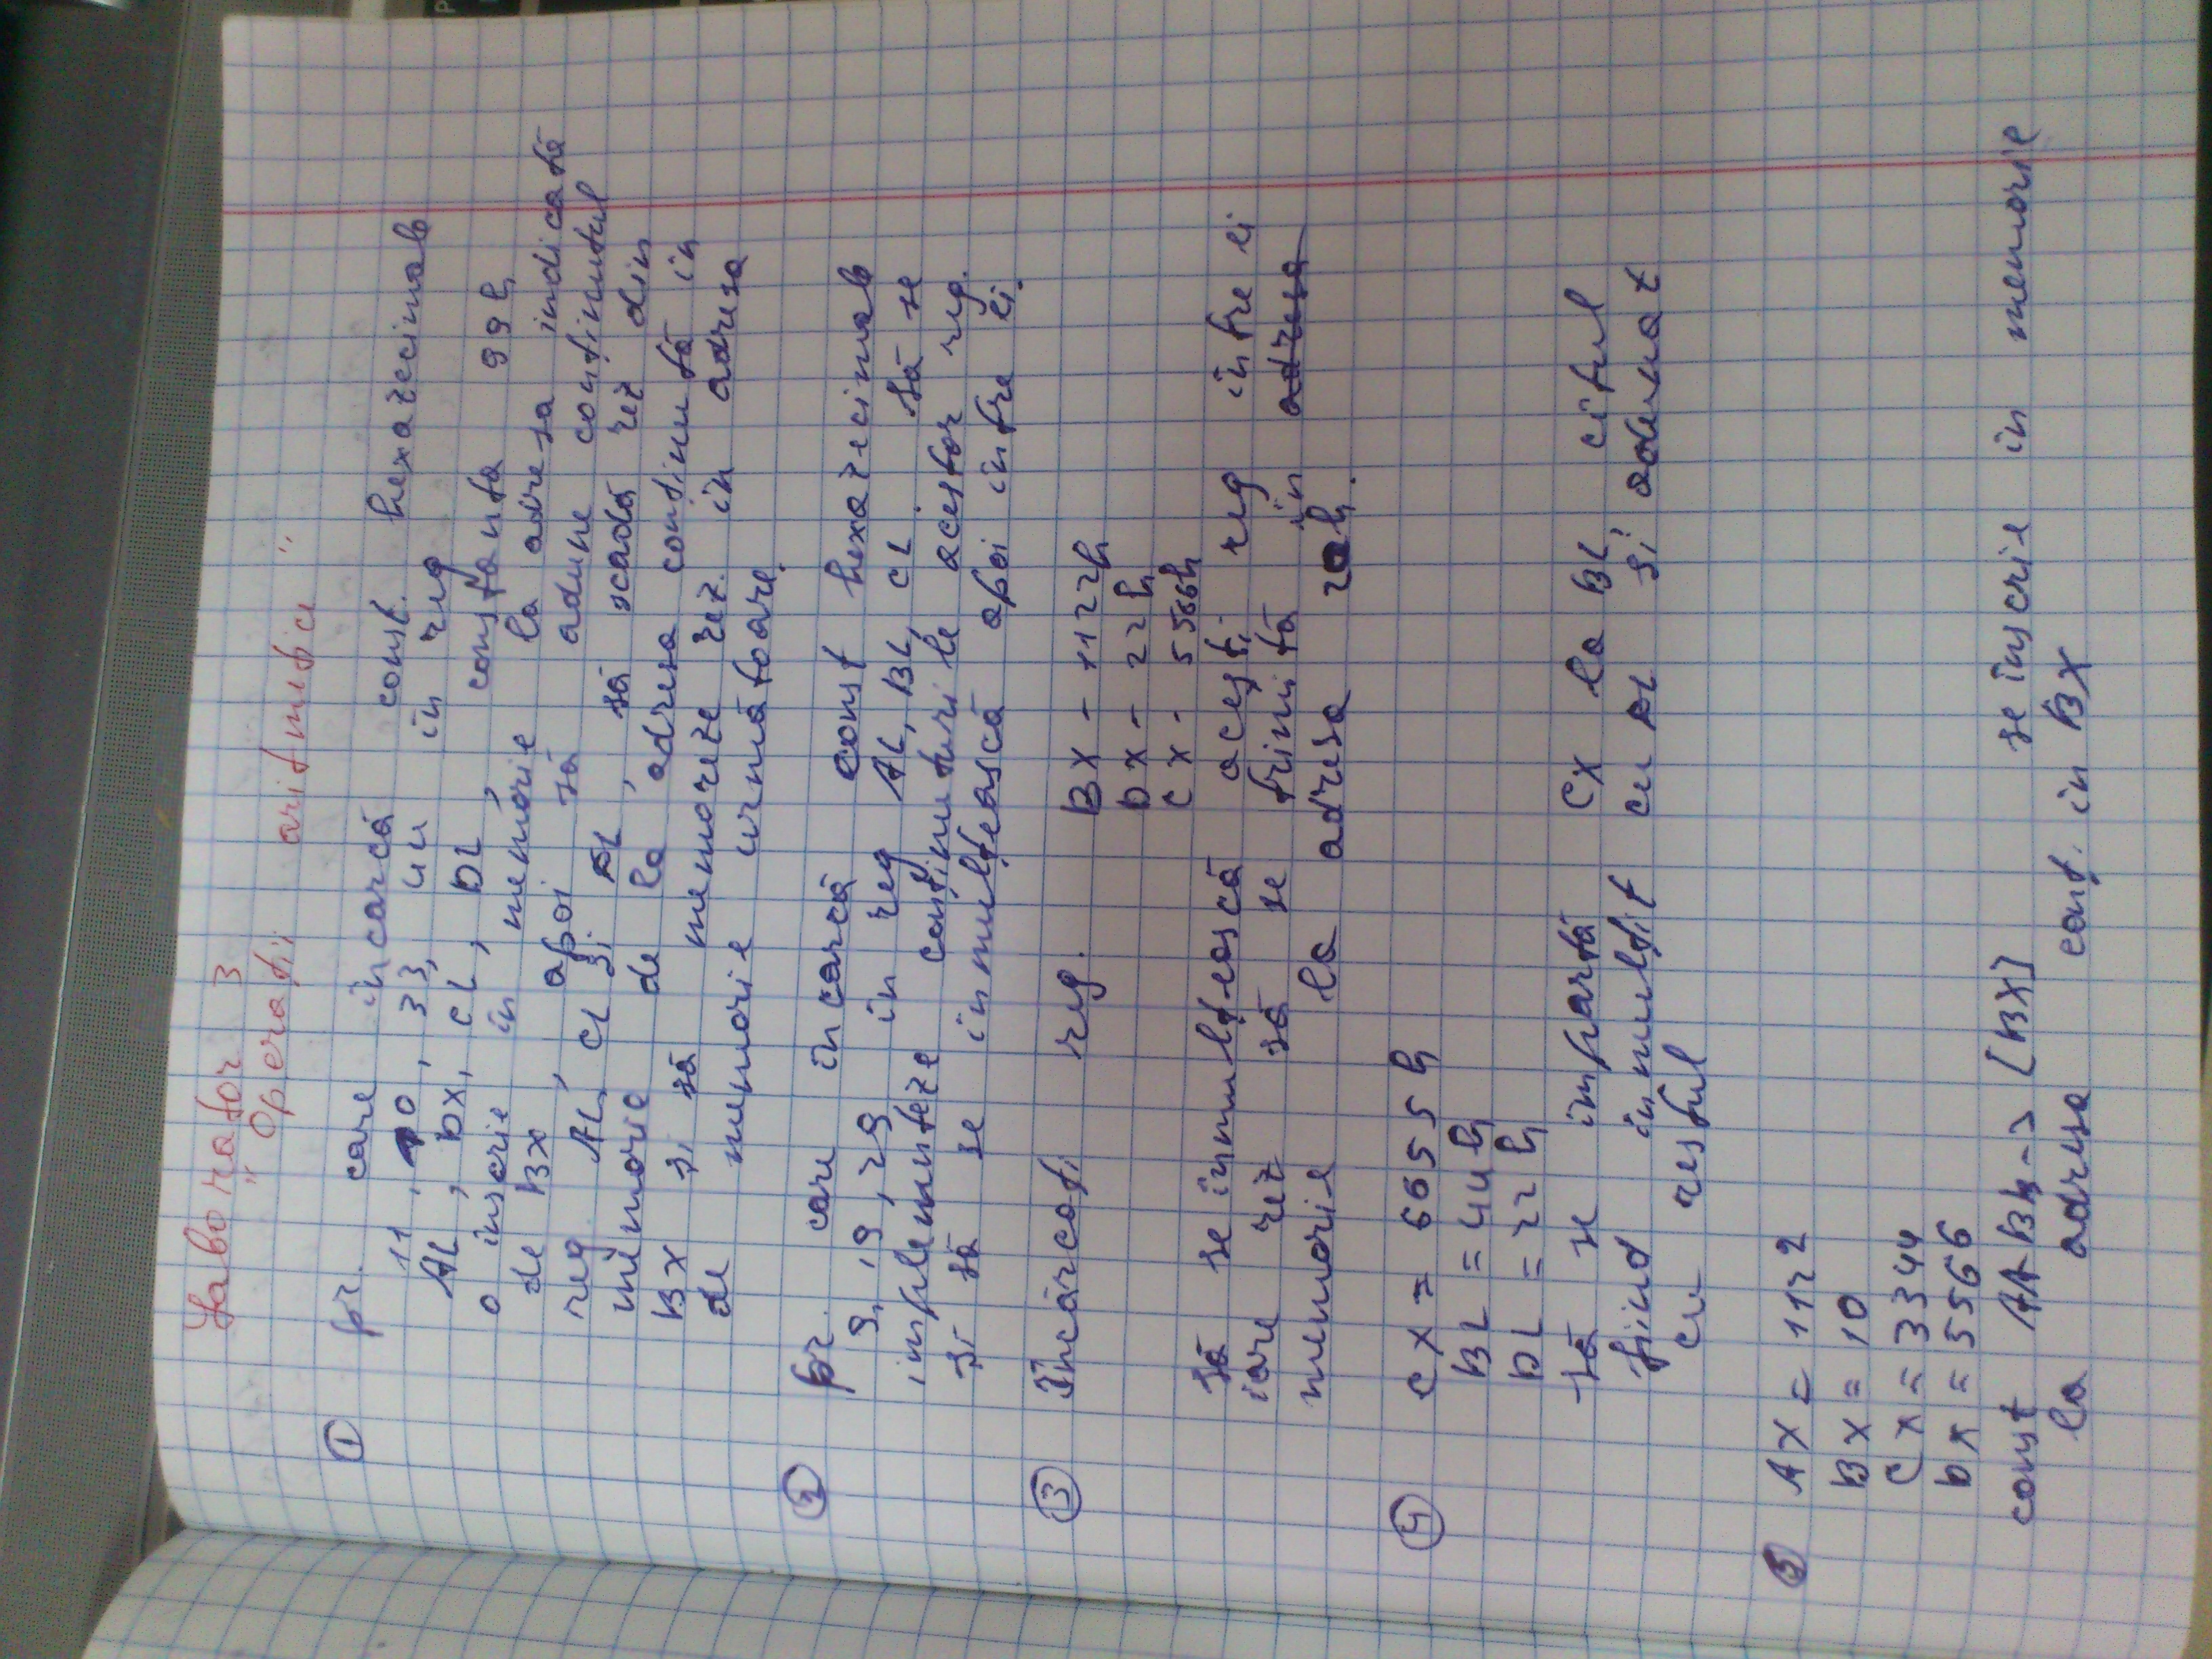 Laborator 3
„ Operații aritmetici "
① pr. care încarcă const. hexazecimale
11, 00, 33, 44 în reg
AL, bx, cl, DL constanta 99h
o înscrie în memorie la adresa indicată
de BX apoi să adune conținutul
reg. AL, cl și DL, să scadă rez din
memorie de la adresa conținută în
BX și să memoreze rez. in adresa
de memorie următoare.
② pr. care încarcă const hexazecimale
9, 19, 29 in reg AL, BL, CL să se
implementeze conținuturile acestor reg.
și să se înmulțească apoi intre ei.
③ Încărcați reg. BX - 1122h
DX - 22h
CX - 5566h
să se înmulțească acești reg intre ei
iare rez să se trimită in
memorie la adresa 20h.
④ CX = 6655h
BL = 44h
DL = 22h
să se impartă CX la BL cîtul
fiind înmulțit cu DL și adunat
cu restul
⑤ AX = 1122
BX = 10
CX = 3344
DX = 5566
const AABBh -> [BX] se înscrie in memorie
la adresa conț. in BX